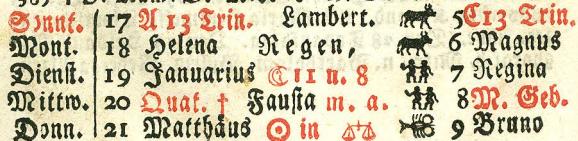 Sonnt. 17 A 13 Trin. Lambert. 5 C 13 Trin.
Mont. 18 Helena Regen, 6 Magnus
Dienst. 19 Januarius ☾ 11 n. 8 7 Regina
Mittw. 20 Quat. † Fausta m. a. 8 M. Geb.
Donn. 21 Matthäus ☉ in ♎ 9 Bruno